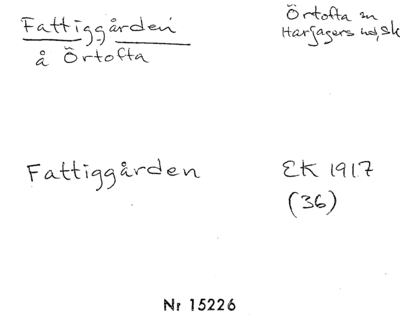 Fattiggården
å Örtofta
Örtofta sn
Harjagers hd, Sk
Fattiggården
EK 1917
(36)
Nr 15226